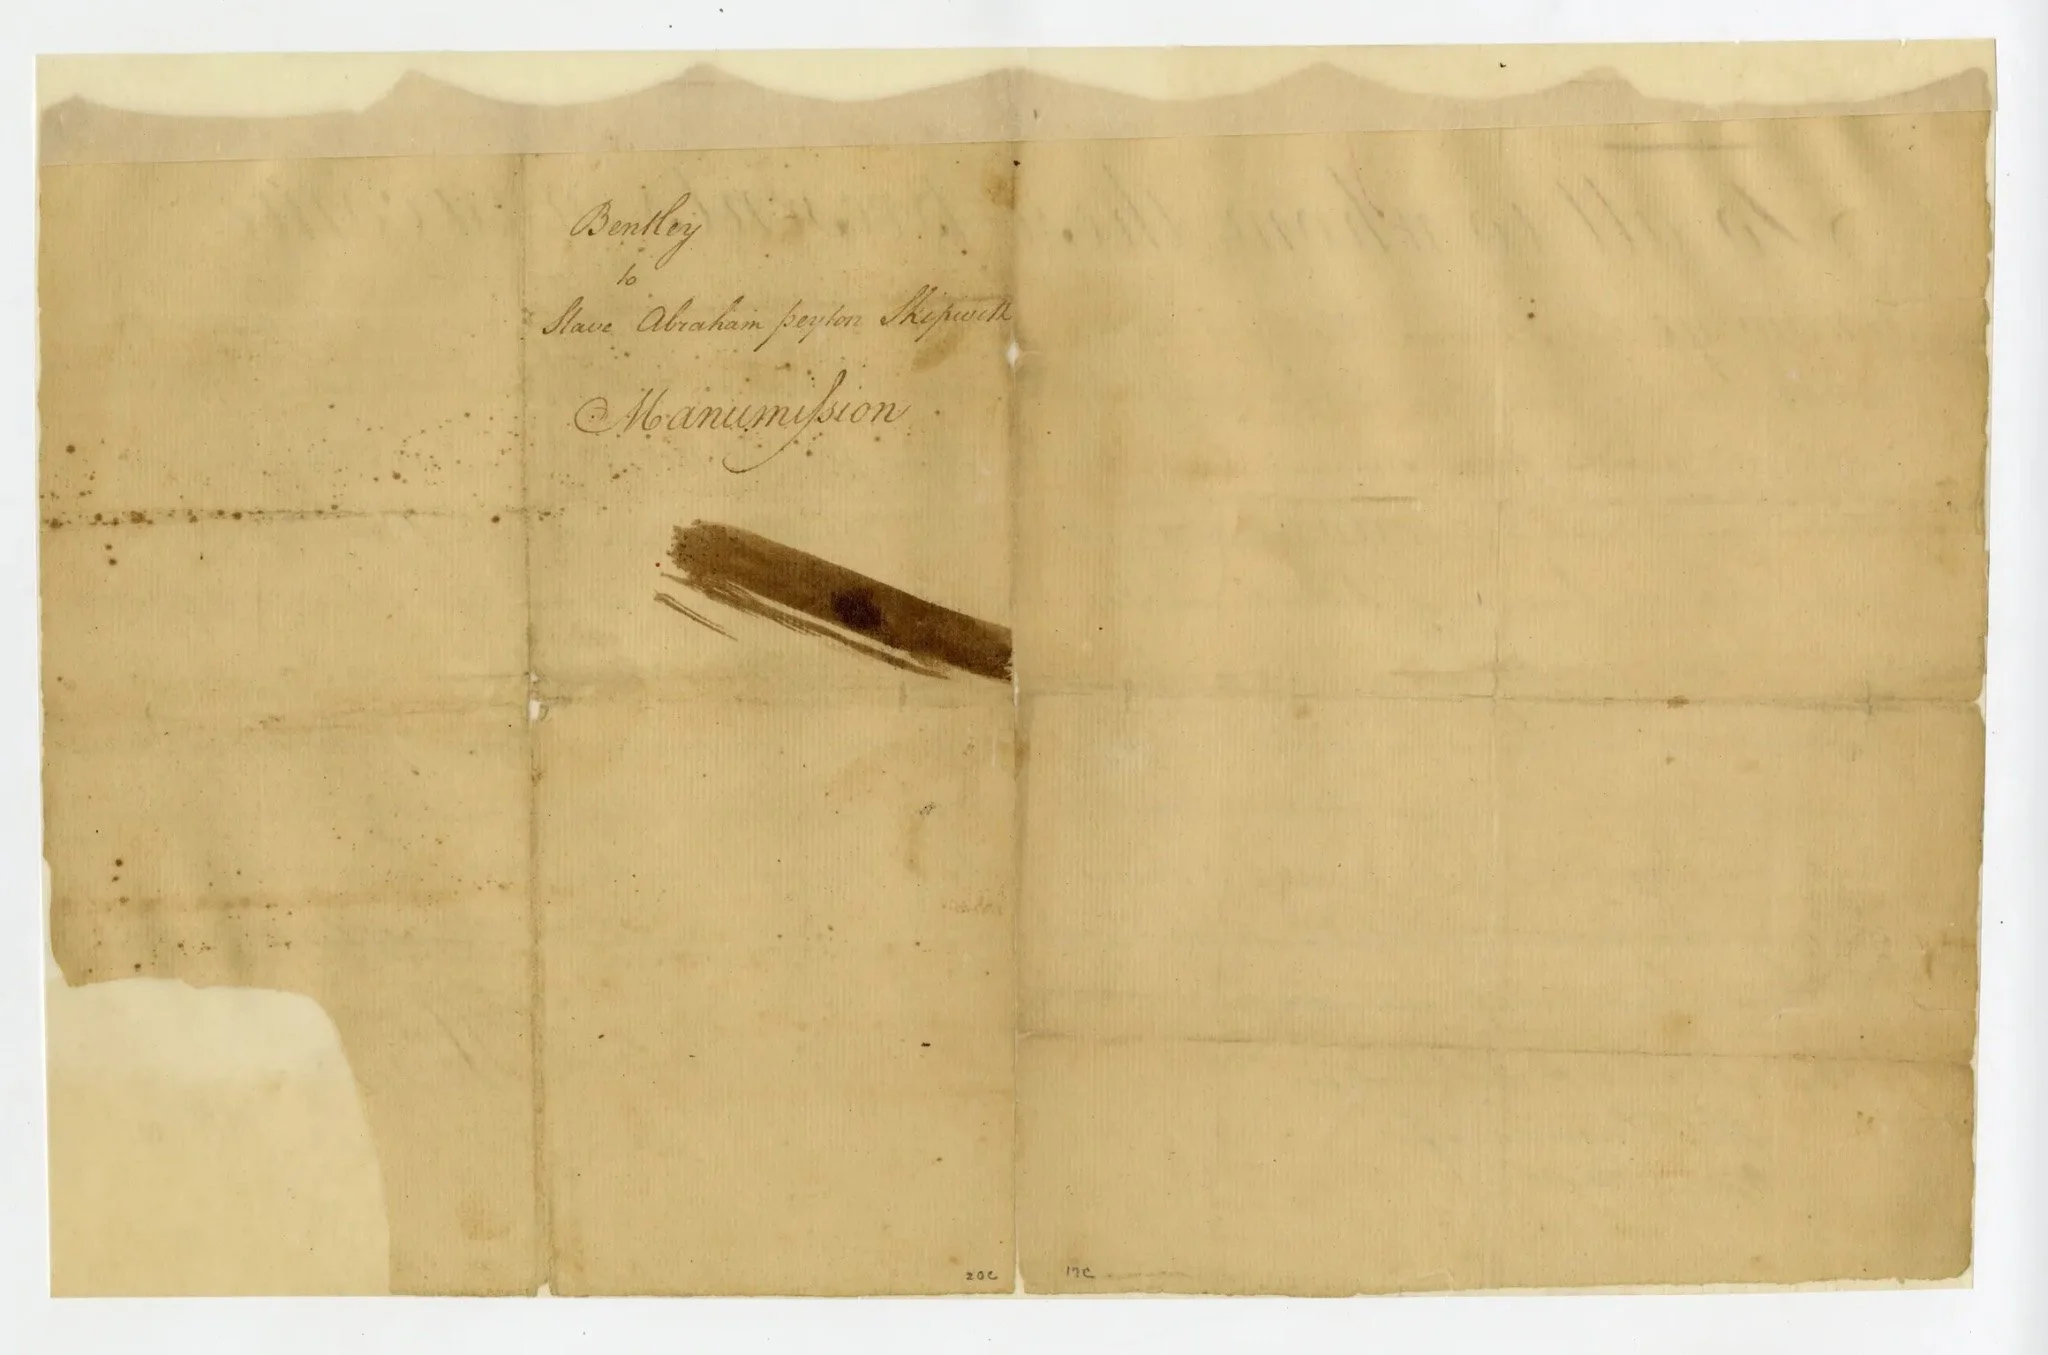 Bentley
to
Slave Abraham peyton Skipwith
Manumiſsion
20C 17C